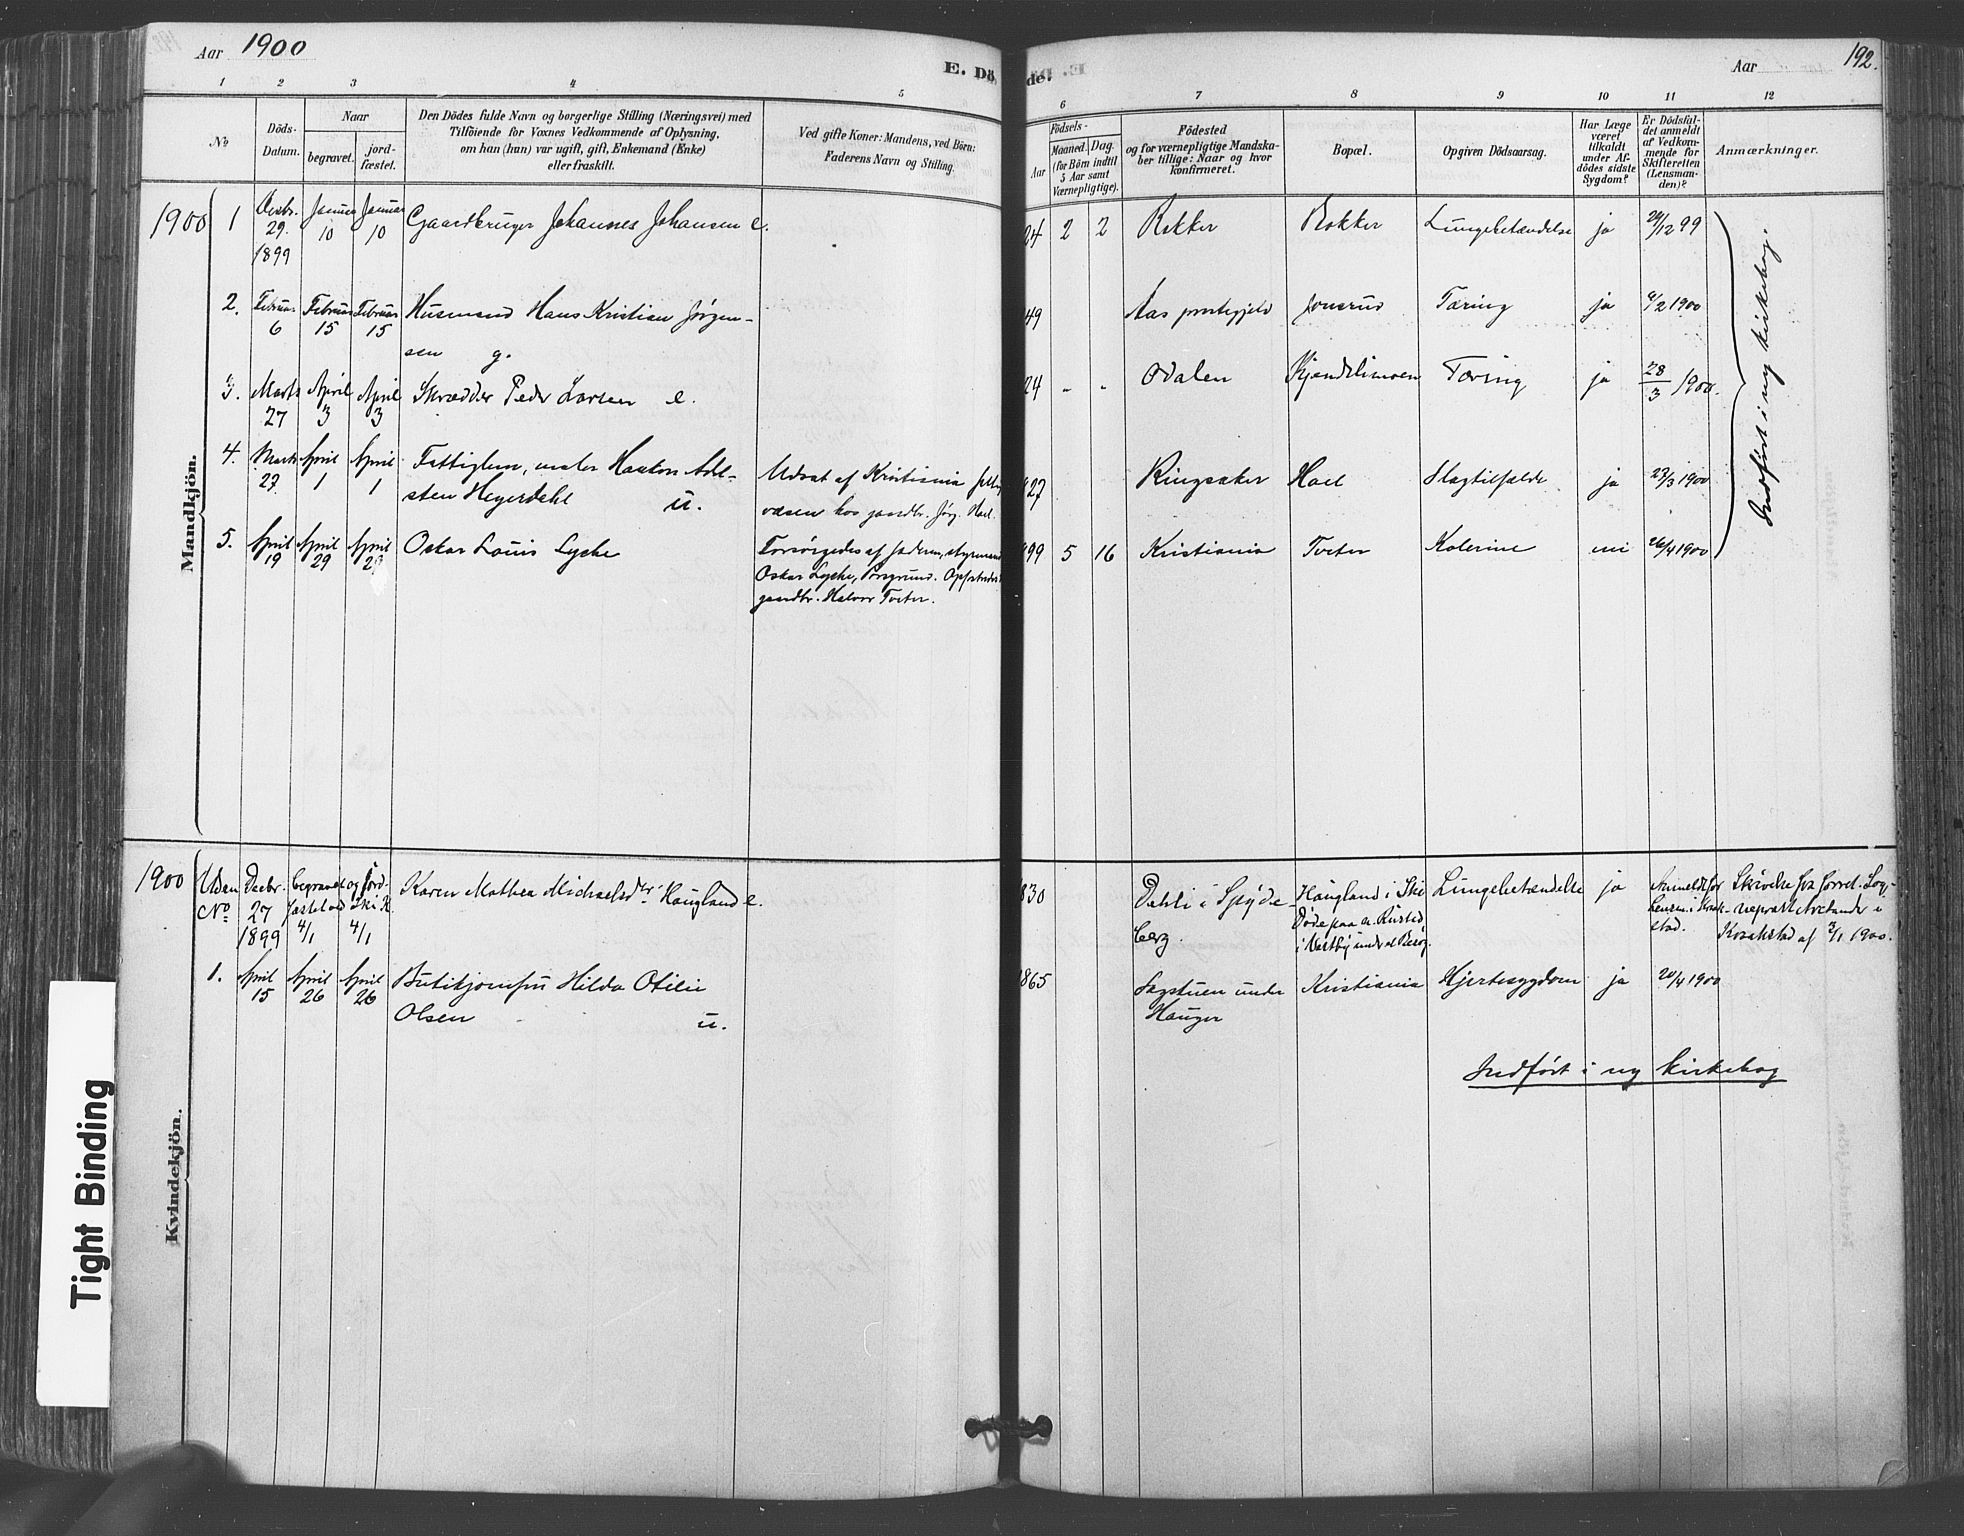 Aar 1900
E. Döde.
Aar
192.
1 2 3 4 5 6 7 8 9 10 11 12
No
Döds-Datum.
Naar
begravet.
jord-fæstet.
Den Dödes fulde Navn og borgerlige Stilling (Næringsvei) med
Tilföiende for Voxnes Vedkommende af Oplysning,
om han (hun) var ugift, gift, Enkemand (Enke)
eller fraskilt.
Ved gifte Koner: Mandens, ved Börn:
Faderens Navn og Stilling.
Födsels-
Aar
Maaned. Dag.
(for Börn indtil
5 Aar samt
Værnepligtige).
Födested
og for værnepligtige Mandska-
ber tillige: Naar og hvor
konfirmeret.
Bopæl.
Opgiven Dödsaarsag.
Har Læge
været
tilkaldt
under Af-
dödes sidste
Sygdom?
Er Dödsfal-
det anmeldt
af Vedkom-
mende for
Skifteretten
(Lensman-
den)?
Anmærkninger.
Mandkjön.
1900 1 Decbr. 29. 1899 Januar 10 Januar 10 Gaardbruger Johannes Johansen e. 24 2 2 Rokker Rokker Lungebetændelse ja 29/12 99
2. Februar 6 Februar 15 Februar 15 Husmand Hans Kristian Jørgen-
sen g. 49 Aas prestegjeld Jonsrud Tæring ja 6/2 1900
3. Marts 27 April 3 April 3 Skrædder Peder Larsen e. 24 " " Odalen Kjendlimoen Tæring ja 28/3 1900.
4. Marts 27. April 1 April 1 Fattiglem, maler Haakon Adel-
sten Heyerdahl u. Udsat af Kristiania
væsen hos gaardbr. Jørg. Hoel. 27 Ringsaker Hoel Slagtilfælde ja 27/3 1900
5. April 19 April 29 April 29 Oskar Louis Lyche Forsørgedes af faderen, styrmand
Oskar Lyche, Porsgrund.
gaardbr. Halvor Torter. 99 5 16 Kristiania Torter Kolerine nei 26/4 1900
Indført i ny kirkebog.
Kvindekjön.
1900 Uden No Decbr. 27 1899 begravet og jord-
fæstet ved Ski K. 4/1 4/1 Karen Mathea Michaelsdr. Haugland e. 830 Dahli i Spyde-
berg. Haugland i Ski
Døde paa
i Vestby Lungebetændelse ja Anmeldt for
Lensm. i Kraak-
stad. Skrivelse fra
Kraakstad af 3/1 1900.
1. April 15 April 26 April 26 Butikjomfru Hilda Otilie
Olsen u. 1865 Sagstuen under
Hauger Kristiania Hjertesygdom ja 20/4 1900
Indført i ny kirkebog
Tight Binding